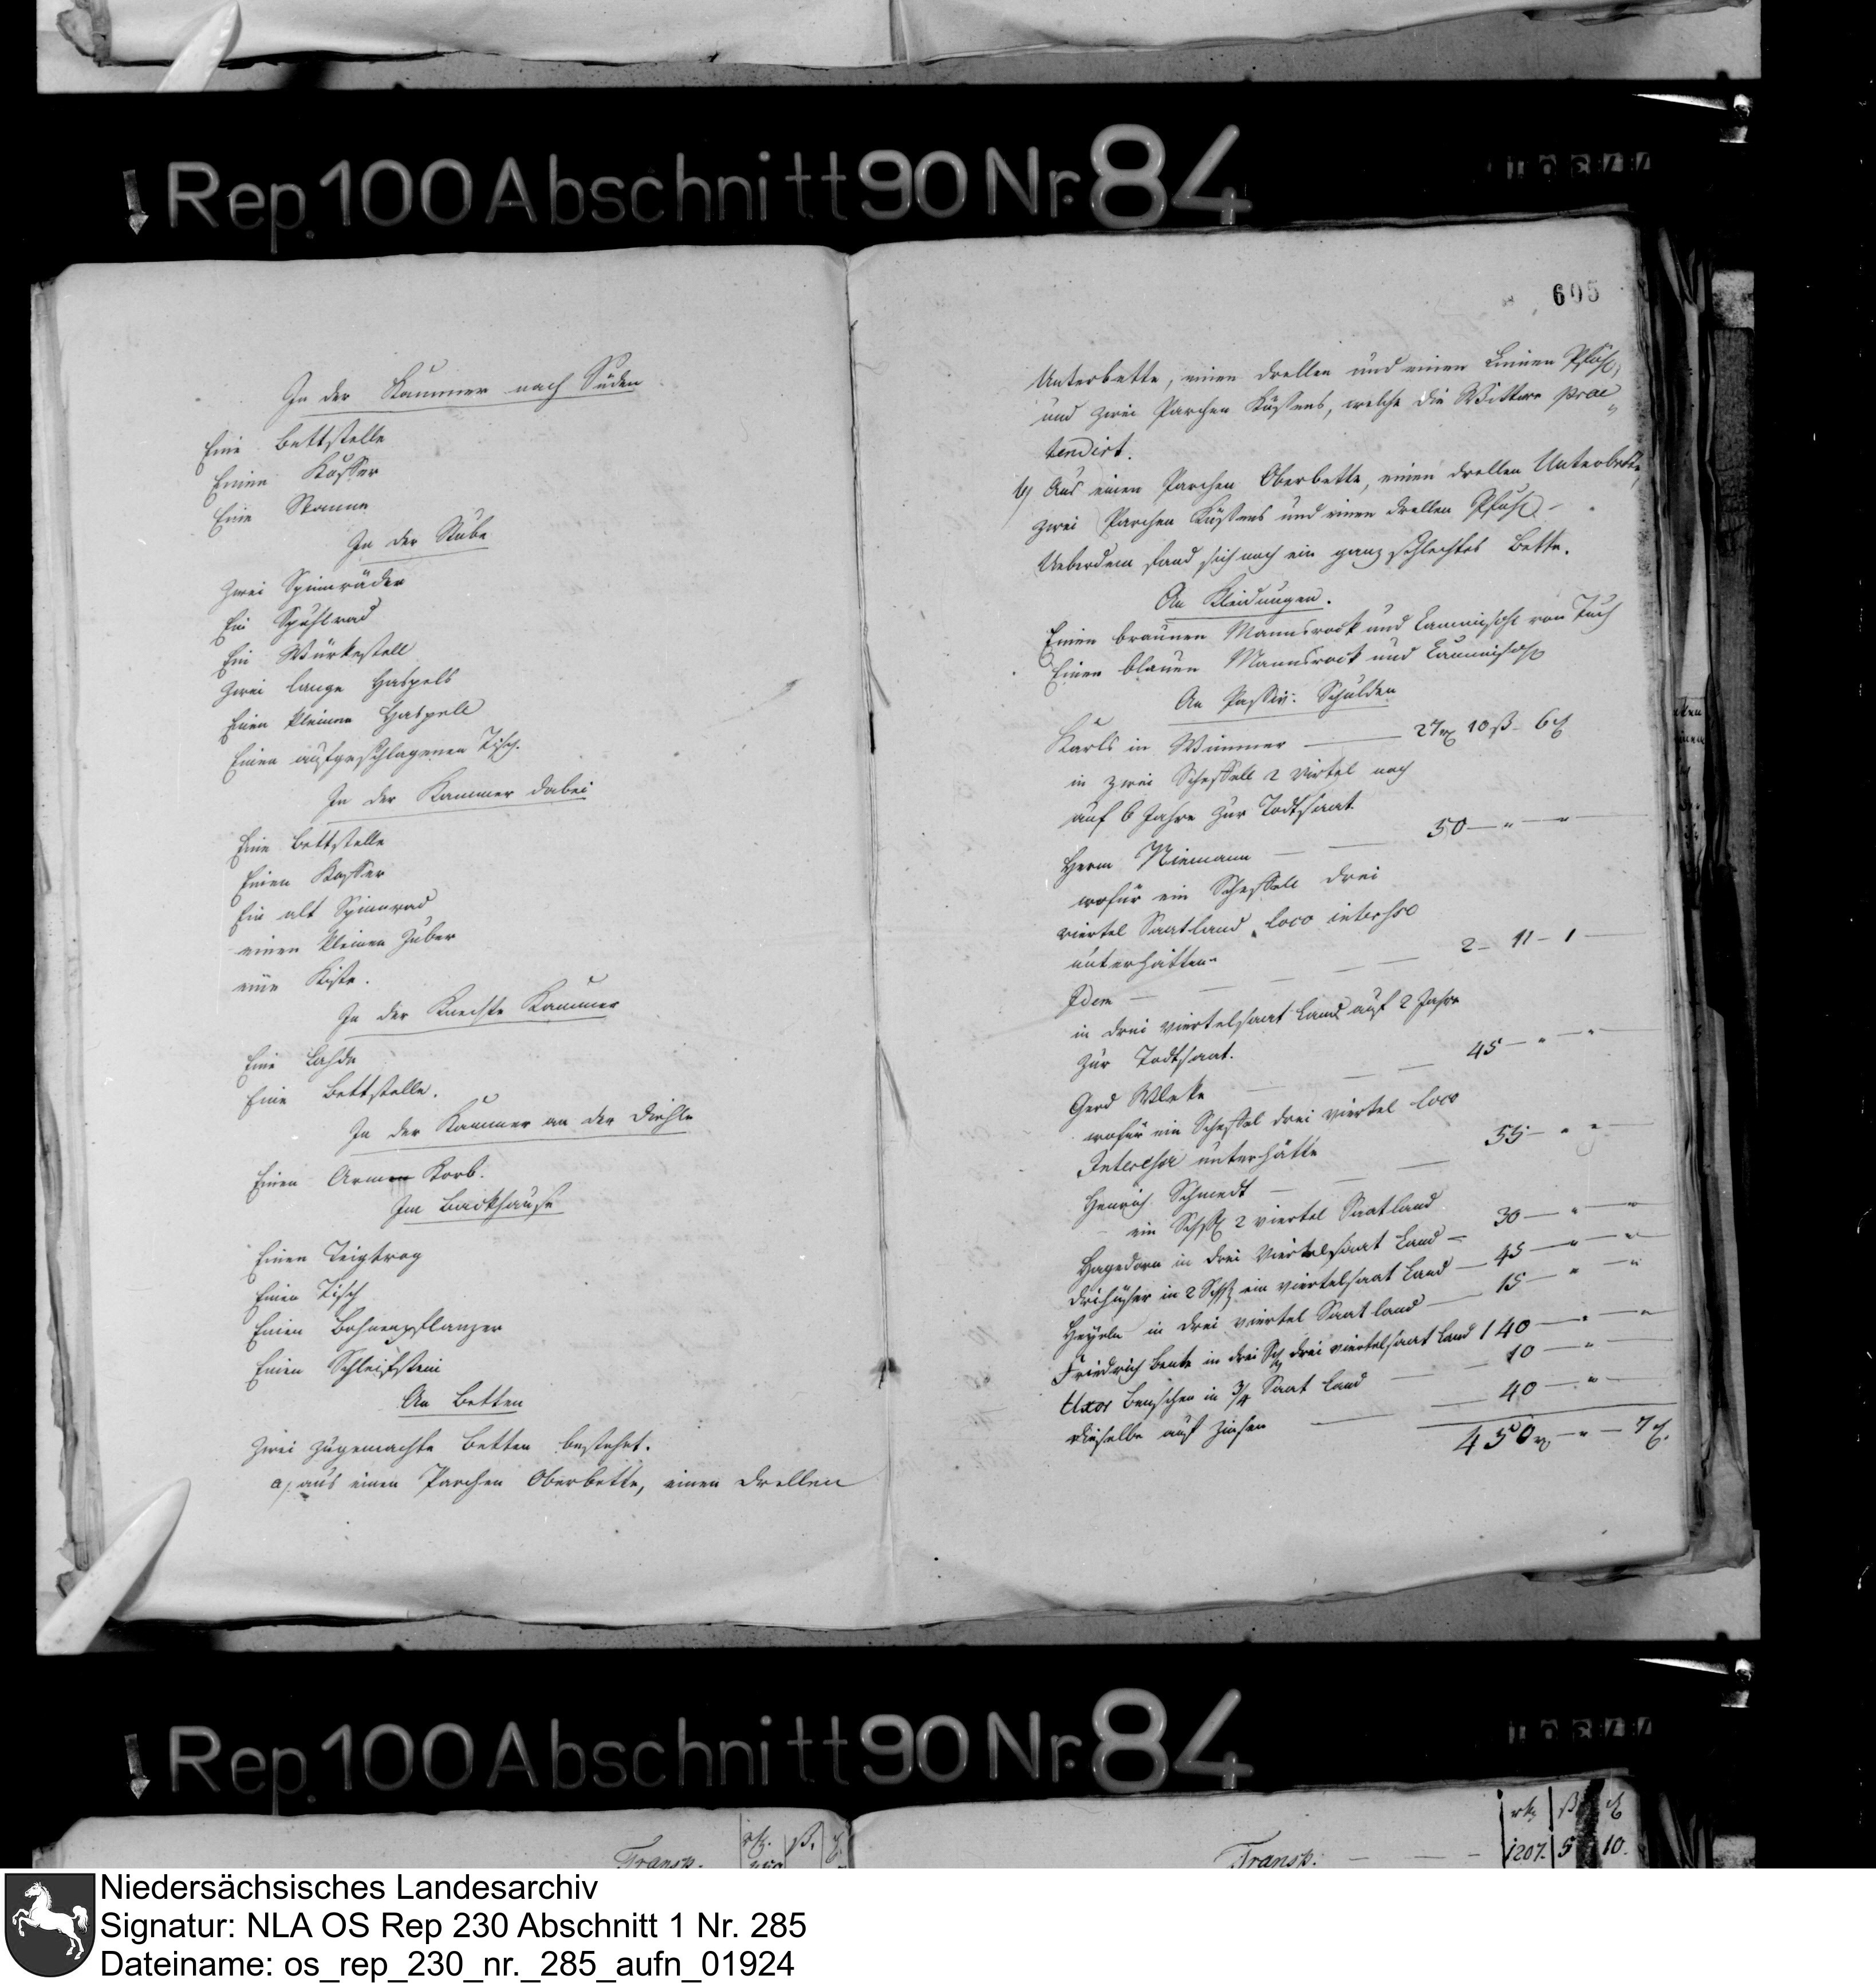 Rep. 100 Abschnitt 90 Nr. 84
In der Kammer nach Süden
Eine Bettstelle
Einen Koffer
Eine
In der Stube
Zwei Spinnräder
Ein Spuhlrad
Ein Würkestell
Zwei lange Haspels
Einen kleinen Haspell
Einen aufgeschlagenen Tisch.
In der Kammer dabei
Eine Bettstelle
Einen Koffer
Ein alt Spinnrad
einen kleinen Zuber
eine Kiste.
In der Knechte Kammer
Eine Lahde
Eine Bettstelle.
In der Kammer an der Diehle
Einen Armen Korb.
Im Backhause
Einen Teigtrog
Einen Tisch
Einen Bohnenpflanzer
Einen Schleifstein
An Betten
Zwei zugemachte Betten bestehet.
a) aus einen Parchen Oberbette, einen drellen
605
Unterbette, einen drellen und einen Linnen Pfühl,
und zwei Parchen Küssens, welche die Wittwe prae
tendirt.
b) Aus einen Parchen Oberbette, einen drellen Unterbette,
zwei Parchen Küssens und einen drellen Pfühl. -
Ueberdem fand sich noch ein ganz schlechtes Bette.
An Kleidungen.
Einen braunen Mannsrock und Cammisohl von Tuch
Einen blauen Mannsrock und Cammisohl
An Passiv: Schulden
Karls in Wimmer — 27 rt 10 ß - 6 d
in zwei Scheffell 2 Virtel noch
auf 6 Jahre zur Todtsaat
Herm Niemann — 50 — " — "
wofür ein Scheffell drei
viertel Saatland loco interesse
unterhatten
Idem — 2 - 11 - 1
in drei viertelsaat Land auf 2 Jahre
zur Todtsaat.
Gerd — 45 — " — "
wofür ein Scheffel drei viertel loco
Interesse unterhätte
Henrich Schmedt — 55 — " "
ein Schfl 2 viertel Saatland
Hagedorn in drei Viertelsaat Land — 30 — " — "
in 2 Schfl ein viertelsaat Land — 45 — " — "
in drei viertel Saatland — 15 — " — "
Friedrich Bente in drei Sch drei viertelsaat Land 140 — " — "
Uxor in 3/4 Saat Land — 10 — "
dieselbe auf Zinsen — 40 — " —
450 rt — " — 7 d.
Rep. 100 Abschnitt 90 Nr. 84
Transp.
Transp. — — —
1207. 5 10.
Niedersächsisches Landesarchiv
Signatur: NLA OS Rep 230 Abschnitt 1 Nr. 285
Dateiname: os_rep_230_nr._285_aufn_01924